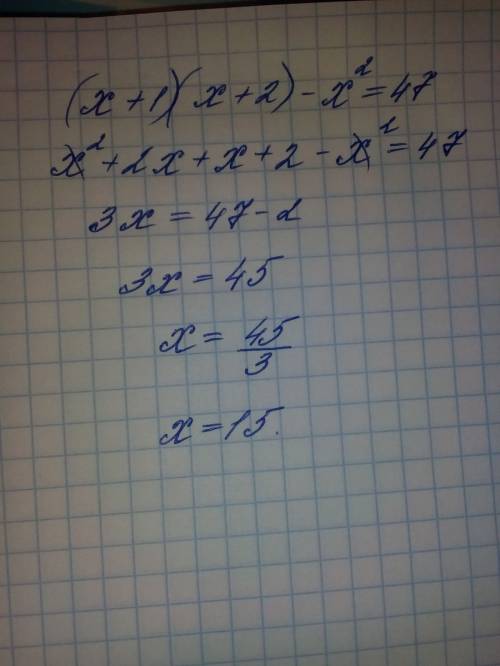 (x+1)(x+2)-x²=47
x²+2x+x+2-x²=47
3x=47-2
3x=45
x=45/3
x=15.